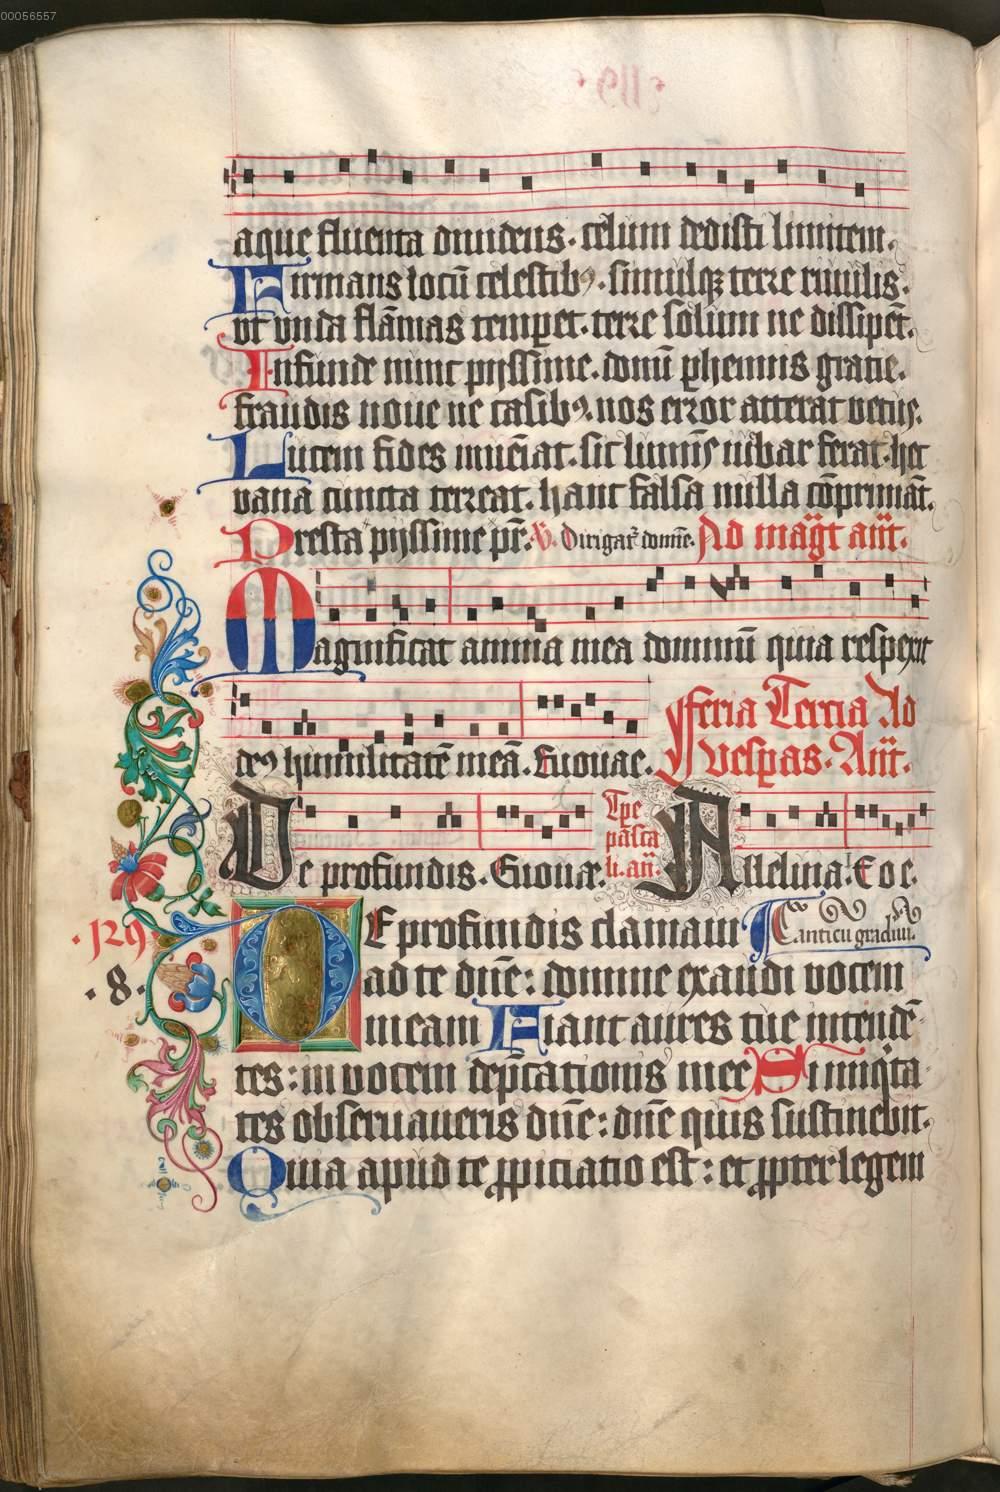 00056557
aque fluenta diuidens. celum dedisti limitem.
Firmans locū celestibꝰ. simulqꝫ terre riuulis.
vt vnda flāmas temperet. terre solum ne dissipēt.
Infunde nunc pijssime. donū perhennis gratie.
fraudis noue ne casibꝰ. nos error atterat vetus.
Lucem fides inueniat. sic luminis iubar ferat. hec
vana cuncta terreat. hanc falsa nulla cōprimāt.
Presta pijssime pr̄. V̄. Dirigat᷑ domīe. Ad mag̅t an̄t.
Magnificat anima mea dominū quia respexit
deꝰ humilitatē meā. Euouae.
Feria Tercia Ad
Vesperas. An̄t.
De profundis. Euouae.
Tpe
pasca
li. an̄.
Alleluia. E o e.
.129
.8.
DE profundis clamaui
Canticū graduū.
ad te dn̄e: domine exaudi vocem
meam Fiant aures tue intendē
tes: in vocem dep̄cationis mee Si iniq̇ta
tes obseruaueris dn̄e: dn̄e quis sustinebit.
Quia apud te ꝓpiciatio est: et ꝓpter legem